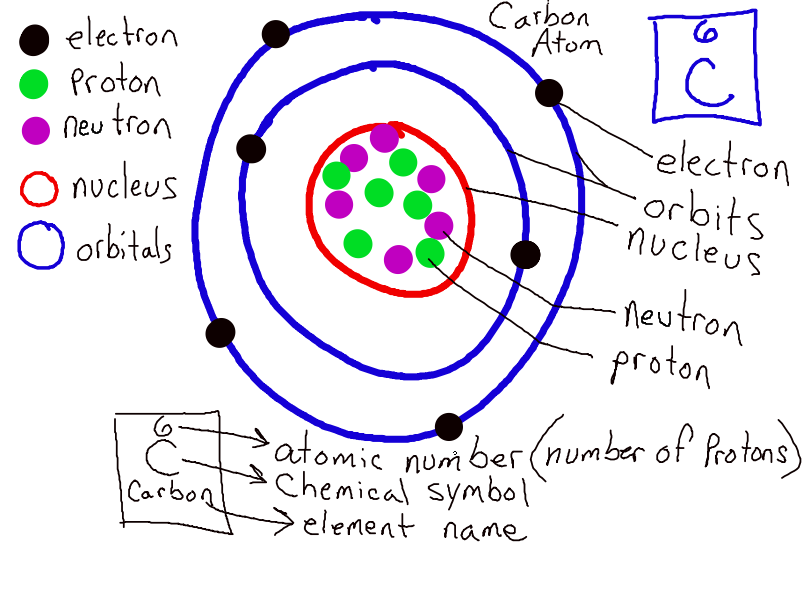 electron
Proton
neutron
nucleus
orbitals
Carbon
Atom
6
C
electron
orbits
nucleus
neutron
proton
6
C
Carbon
atomic number (number of Protons)
Chemical symbol
element name